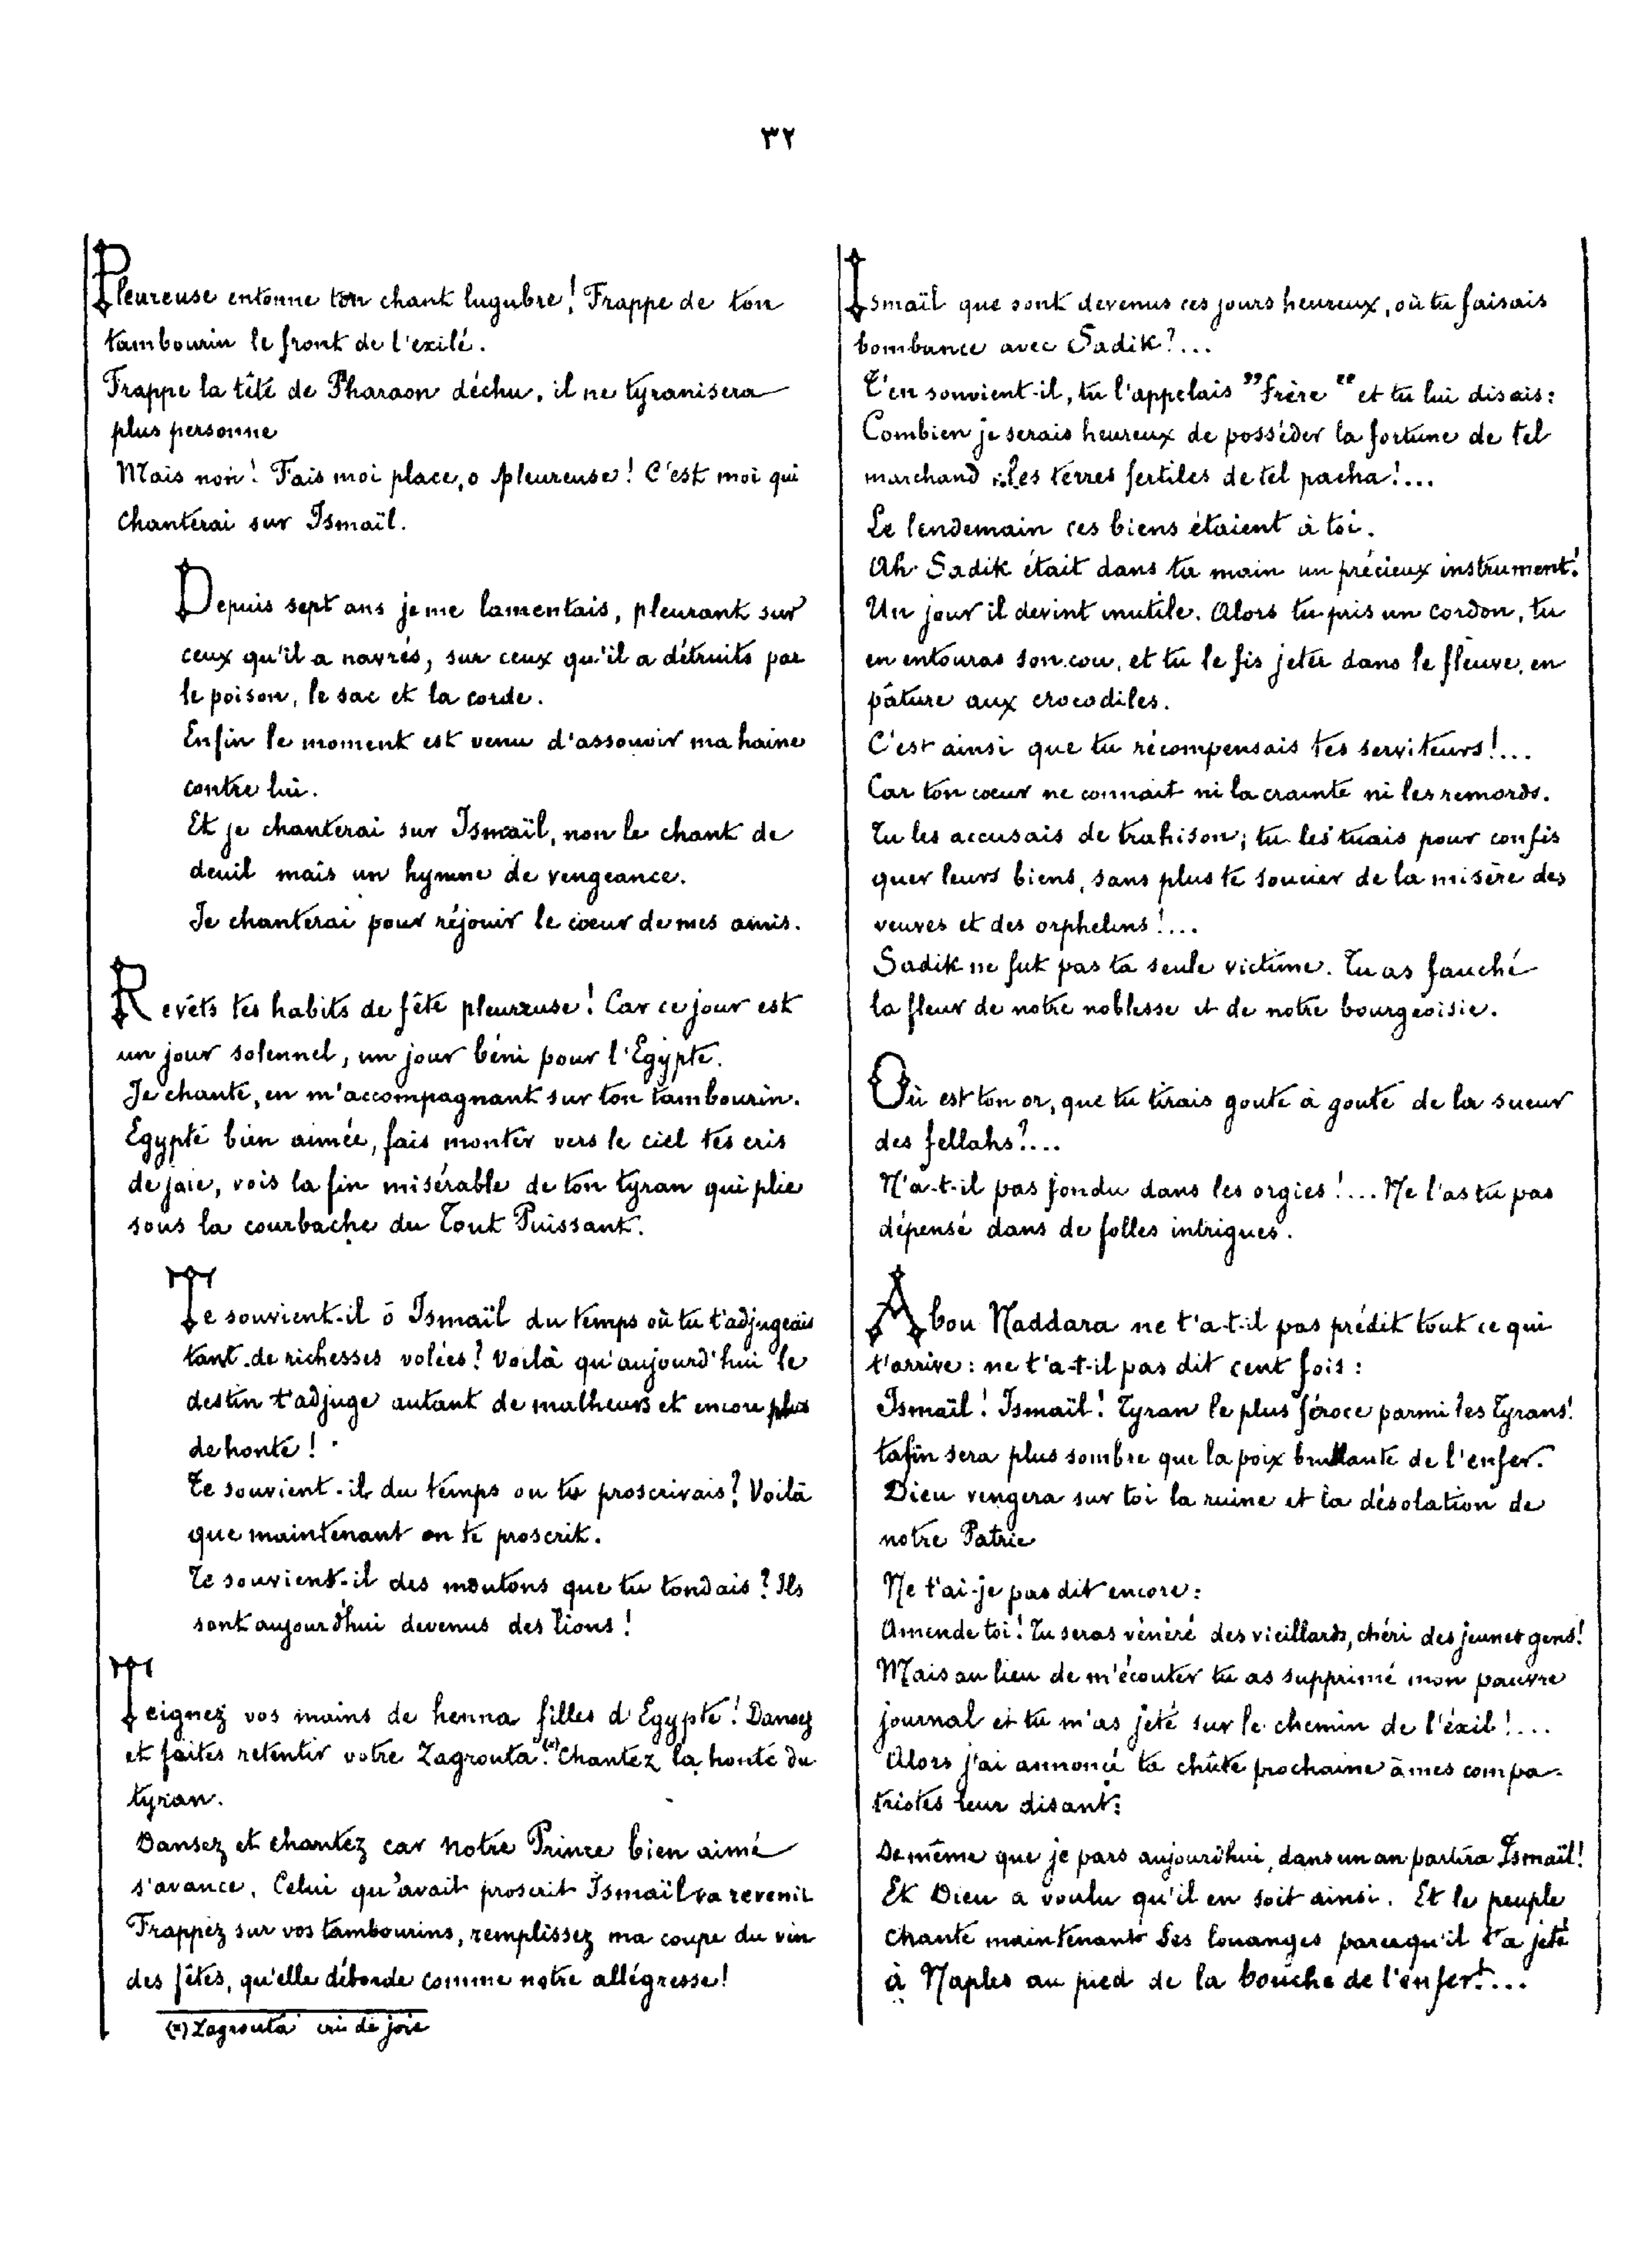 ٣٢
Pleureuse entonne ton chant lugubre! Frappe de ton
tambourin le front de l'exilé.
Frappe la tête de Pharaon déchu, il ne tyranisera
plus personne
Mais non! Fais moi place, o pleureuse! C'est moi qui
chanterai sur Ismaïl.
Depuis sept ans je me lamentais, pleurant sur
ceux qu'il a navrés, sur ceux qu'il a détruits par
le poison, le sac et la corde.
Enfin le moment est venu d'assouvir ma haine
contre lui.
Et je chanterai sur Ismaïl, non le chant de
deuil mais un hymne de vengeance.
Je chanterai pour réjouir le cœur de mes amis.
Revêts tes habits de fête pleureuse! Car ce jour est
un jour solennel, un jour béni pour l'Egypte.
Je chante, en m'accompagnant sur ton tambourin.
Egypte bien aimée, fais monter vers le ciel tes cris
de joie, vois la fin misérable de ton tyran qui plie
sous la courbache du Tout Puissant.
Te souvient-il ô Ismaïl du temps où tu t'adjugeais
tant de richesses volées? Voilà qu'aujourd'hui le
destin t'adjuge autant de malheurs et encore plus
de honte!
Te souvient-il du temps ou tu proscrivais? Voilà
que maintenant on te proscrit.
Te souvient-il des moutons que tu tondais? Ils
sont aujourd'hui devenus des lions!
Teignez vos mains de henna filles d'Egypte! Dansez
et faites retentir votre Zagrouta.(*) Chantez la honte du
tyran.
Dansez et chantez car notre Prince bien aimé
s'avance. Celui qu'avait proscrit Ismaïl va revenir
Frappez sur vos tambourins, remplissez ma coupe du vin
des fêtes, qu'elle déborde comme notre allégresse!
(*) Zagrouta cri de joie
Ismaïl que sont devenus ces jours heureux, où tu faisais
bombance avec Sadik?...
T'en souvient-il, tu l'appelais "Frère" et tu lui disais:
Combien je serais heureux de posséder la fortune de tel
marchand, les terres fertiles de tel pacha!...
Le lendemain ces biens étaient à toi.
Ah Sadik était dans ta main un précieux instrument!
Un jour il devint inutile. Alors tu pris un cordon, tu
en entouras son cou, et tu le fis jeter dans le fleuve, en
pâture aux crocodiles.
C'est ainsi que tu récompensais tes serviteurs!...
Car ton cœur ne connait ni la crainte ni les remords.
Tu les accusais de trahison; tu les tuais pour confis
quer leurs biens, sans plus te soucier de la misère des
veuves et des orphelins!...
Sadik ne fut pas ta seule victime. Tu as fauché
la fleur de notre noblesse et de notre bourgeoisie.
Où est ton or, que tu tirais goute à goute de la sueur
des fellahs?...
N'a-t-il pas fondu dans les orgies!... Ne l'as tu pas
dépensé dans de folles intrigues.
Abou Naddara ne t'a-t-il pas prédit tout ce qui
t'arrive: ne t'a-t-il pas dit cent fois:
Ismaïl! Ismaïl! Tyran le plus féroce parmi les Tyrans!
ta fin sera plus sombre que la poix brulante de l'enfer.
Dieu vengera sur toi la ruine et la désolation de
notre Patrie
Ne t'ai-je pas dit encore:
Amende toi! Tu seras vénéré des vieillards, chéri des jeunes gens!
Mais au lieu de m'écouter tu as supprimé mon pauvre
journal et tu m'as jeté sur le chemin de l'éxil!...
Alors j'ai annoncé ta chûte prochaine à mes compa-
triotes leur disant:
De même que je pars aujourd'hui, dans un an partira Ismaïl!
Et Dieu a voulu qu'il en soit ainsi. Et le peuple
chante maintenant Ses louanges parcequ'il t'a jeté
à Naples au pied de la bouche de l'enfer!...